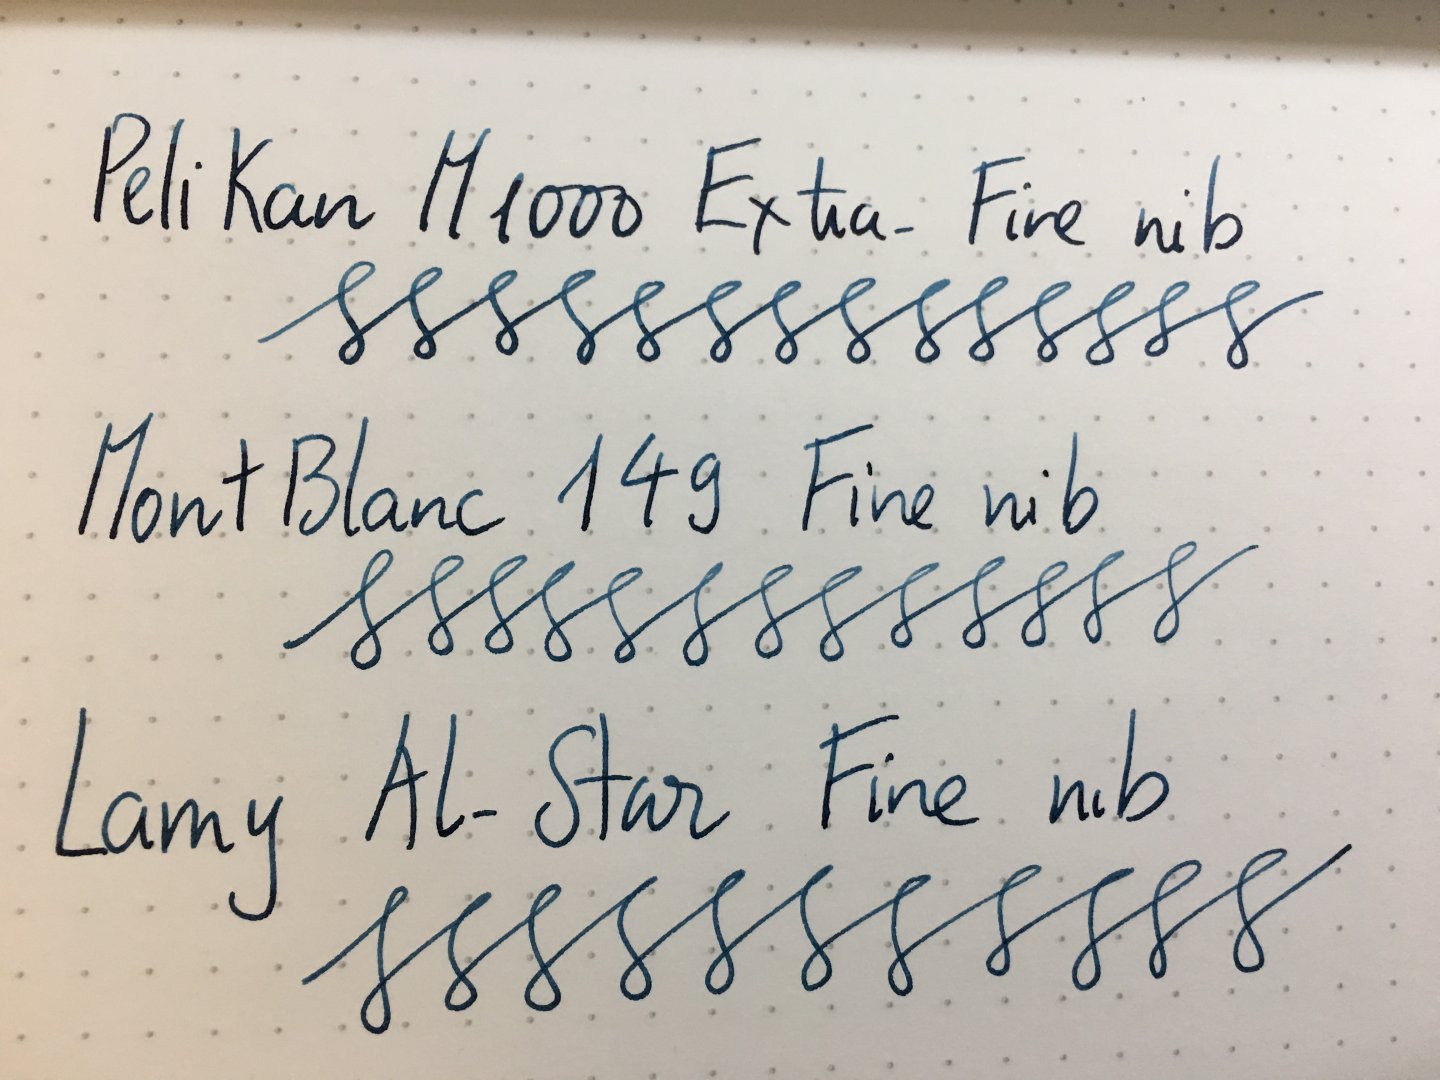 Pelikan M1000 Extra-Fine nib
MontBlanc 149 Fine nib
Lamy Al-Star Fine nib